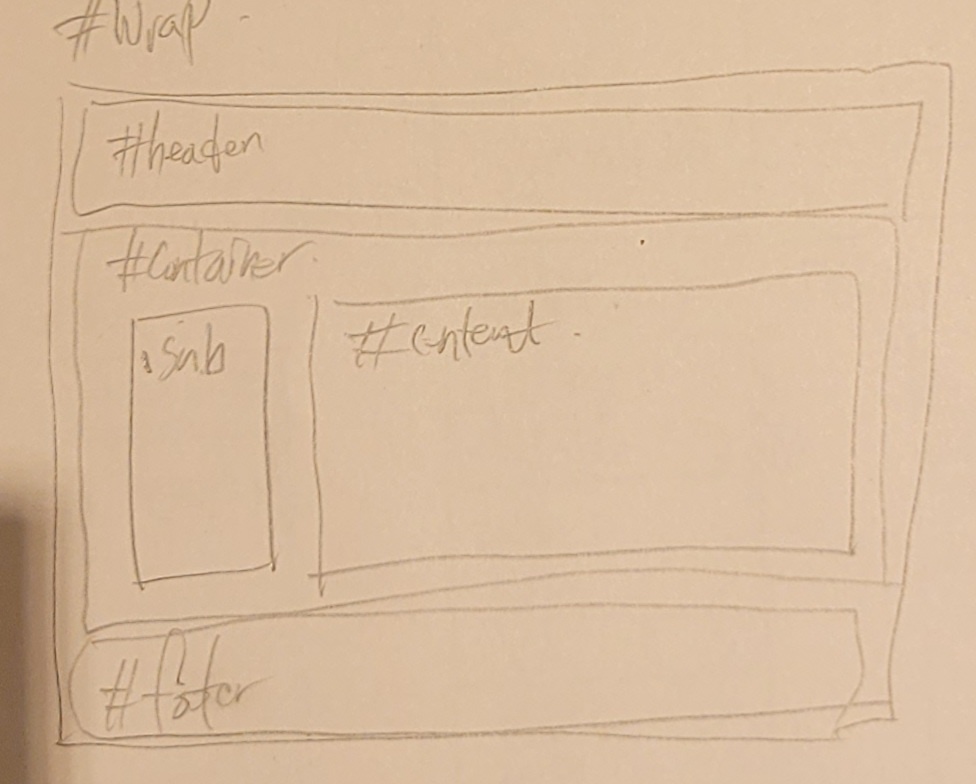 #Wrap
#header
#Container
.sub
#content
#footer